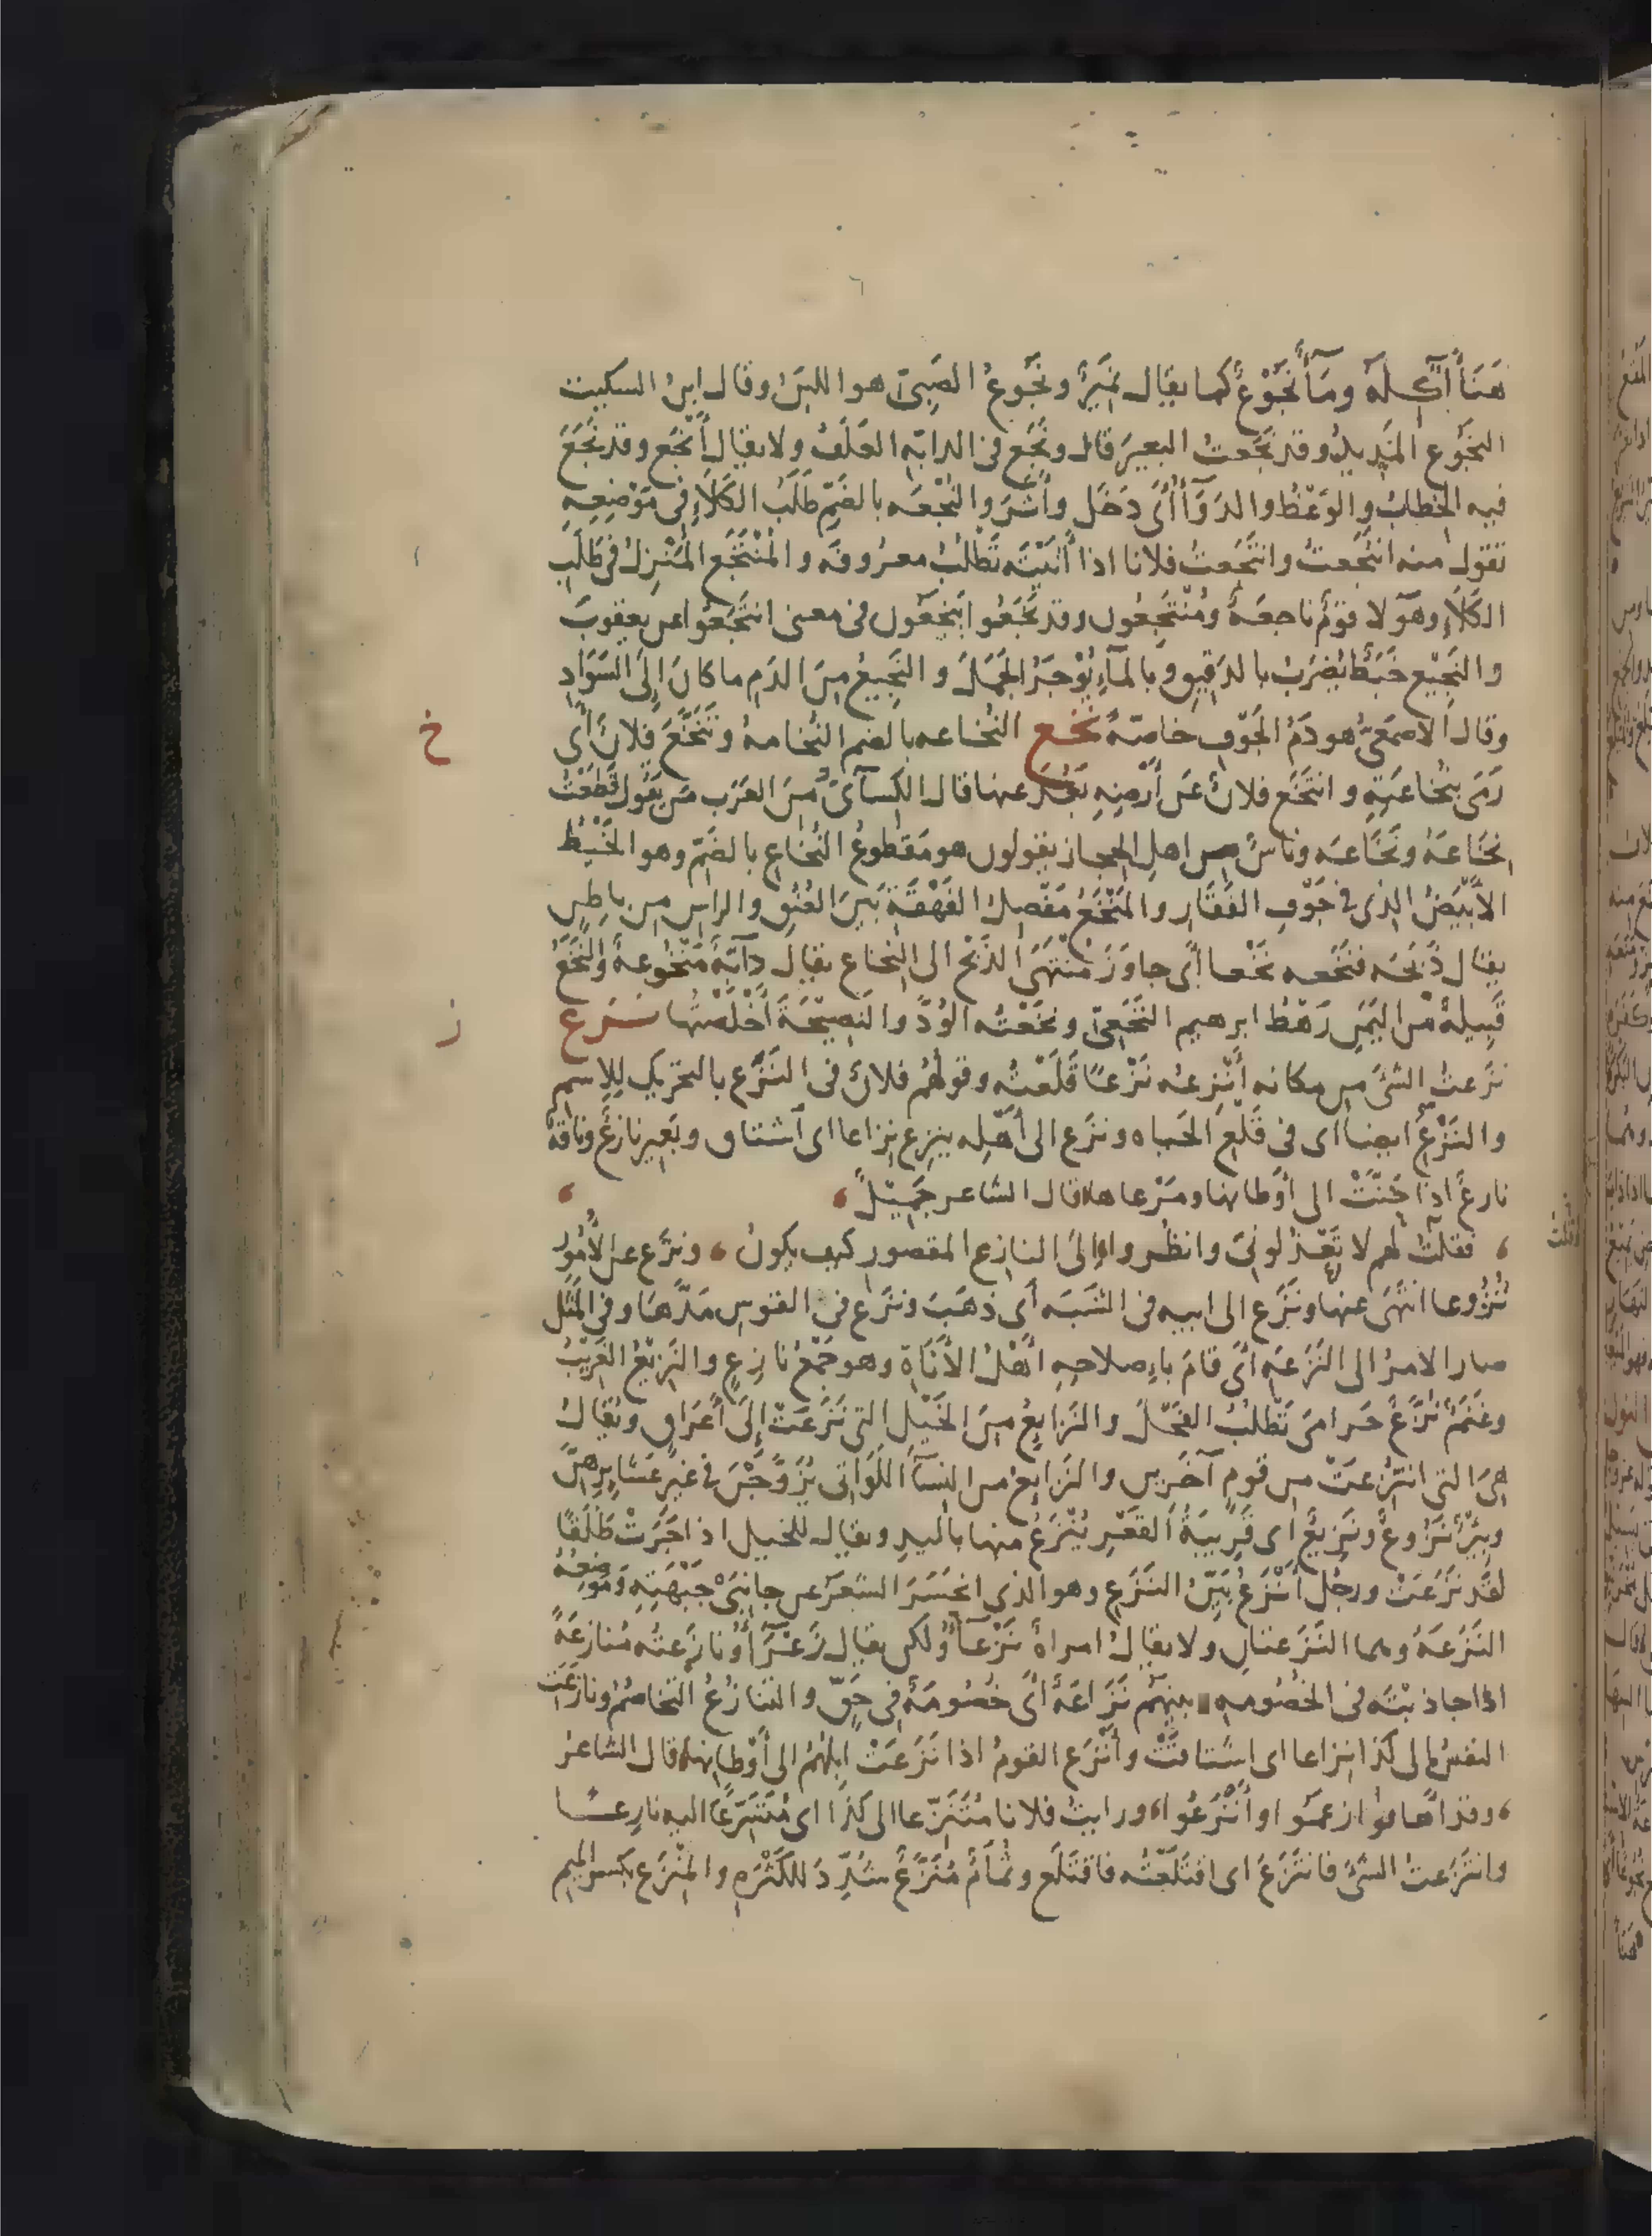 هَنَأَ آكِلَهُ وَمَآءٌ نَجُوْعٌ كما يقال نَمِيْرٌ ونَجُوعُ الصَبِىّ هو اللبَنُ وقال ابنُ السكيت
النَجُوع المَدِيدُ وقد نَجَعتُ البعيرَ قال ونَجَع فى الدابّه العَلَفُ ولا يقال أَنْجَع وقد نَجَعَ
فيه الخِطابُ والوَعْظُ والدَوَآءُ أىْ دَخَل وأَثَّرَ والنُجْعَه بالضَمِّ طَلَبُ الكَلَأِ فى مَوْضِعِهِ
تقول منه انتَجَعتُ وانتَجَعتُ فلانا اذا أتَيْتَه تَطْلُبُ معرُوفَه والمُنْتَجَع المَنْزِلُ فى طَلَبِ
الكَلَأِ وهَوَلا قَومٌ ناجِعَةٌ ومُنْتَجِعُون وقد نَجَعُوا يَنْجَعُون فى معنى انتَجَعُوا عن يعقوبَ
والنَجِيْع خَبَطٌ يُضرَبُ بالدَقِيقِ وبالمآءِ يُوْجَرُ الجَمَلَ والنَجِيعُ مِنَ الدَمِ ما كانَ إلَى السَوَادِ
وقال الاصمَعىُّ هو دَمُ الجَوْفِ خاصّةً نخع النُخَاعه بالضم النُخامةُ وتَنَخَّعَ فلانٌ أى
رَمَى بنُخاعَتِهِ وانتَخَع فلانٌ عن أَرضِهِ بَعُدَ عنها قال الكِسآئىُّ مِنَ العَرَب مَن يَقُول قَطَعْتُ
نِخَاعَهُ ونَخَاعَه وناسٌ من اهلِ الحِجاز يقولون هو مَقطوعُ النُخَاعِ بالضَمّ وهو الخَيْطُ
الأَبْيَضُ الذى فى جَوْفِ الفَقَارِ والمَنْخَعُ مَفْصِلُ الفَهْقَةِ بَينَ العُنُقِ والراسِ من باطِنٍ
يقال ذَبَحَه فنَخَعه نَخْعا أى جاوَزَ مُنْتَهَى الذَبْحِ الى النُخاع يقال دابّةٌ مَنْخُوعةٌ والنَّخَعُ
قَبِيلةٌ مِنَ اليَمَنِ رَهْطُ ابرهيم النَخَعِىّ ونَخَعْتُه الوُدَّ والنَصِيْحَةَ أَخْلَصْتُها نــزع
نَزَعتُ الشئَ من مكانه أَنْزِعُه نَزْعًا قَلَعْتُه وقولهُم فلانٌ فى النَزَعِ بالتحرِيكِ لِلِاسمِ
والنَزْعِ ايضا اى فى قَلْعِ الحَياه ونَزَع الى أَهْلِه ينزِع نِزاعا اى اشتاق وبَعِير نازِعٌ وناقةٌ
نازِعٌ اذا حَنَّتْ الى أَوْطانها ومَرْعاها قال الشاعر جَمِيْلٌ
فقلتُ لهُم لا تَعْذُلُونِىَ وانظُروا الىَ النازِعِ المقصورِ كيف يكونُ ، ونَزَع عن الأُمُورِ
نُزُوعا انْتَهَى عنها ونَزَع الى ابيه فى الشَبَه أى ذَهَبَ ونَزَع فى القَوسِ مَدَّهَا وفى المَثَل
صار الامرُ الى النَزَعَهِ أىْ قامَ بإصلاحِهِ أَهْلُ الأَنَاةِ وهو جَمْعُ نازِعٍ والنَزِيْعُ الغَرِيْبُ
وغَنَمٌ نُزَّعٌ حَرامَى تَطْلُبُ الفَحْلَ والنَزايِعُ مِنَ الخَيْلِ التى نَزَعَتْ إلَى أَعْرَاقٍ ويُقال
هِىَ التى انتُزِعَتْ من قومٍ آخَرِين والنَزايِعُ من النِسآءِ اللَوَاتى يُزَوَّجْنَ فى غيرِ عَشايِرِهِنَّ
وبِئْرٌ نَزُوعٌ ونَزِيْعٌ اى قَرِيبَةُ القَعْرِ يُنْزَعُ منها باليدِ ويقال للخيل اذا جَرَتْ طَلَقًا
لقَد نَزَعَتْ ورجُل أَنْزَعُ بَيِّنُ النَزَعِ وهو الذى انحَسَرَ الشَعَرُ عن جانِبَىْ جَبْهَتِهِ ومَوضِعُهُ
النَزَعَةُ وهما النَزَعتانِ ولا يقالُ امراةٌ نَزْعآءُ ولكن يقال زَعْرَآءُ ونازَعتُه مُنازَعَةً
اذا جاذَبْتَه فى الخُصُومه بينهُم نَزَاعَةٌ أىْ خُصُومَةٌ فى حَقّ والتنازُعُ التخاصُمُ ونازَعَت
النفسُ الى كَذا نِزاعا اى اشْتاقَتْ وأَنْزَع القومُ اذا نَزَعَتْ ابِلُهُمْ الى أَوْطانها قال الشاعرُ
، وقد اهافوا زعموا وأَنْزَعُوا، ورايتُ فلانا مُتَنَزِّعا الى كذا اى مُتَسَرِّعًا اليه نازِعــا
وانتَزَعتُ الشئَ فانتَزَعَ اى اقتَلَعْتُه فاقتَلَع وثُمَامٌ مُنَزَّعٌ شُدِّدَ للكَثْرَهِ والمِنْزَع بكسرالميم
خ
ز